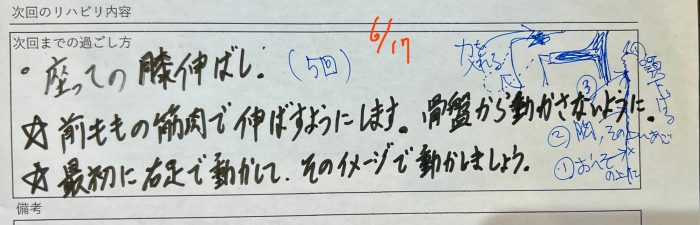 次回のリハビリ内容
次回までの過ごし方
6/17
・座っての膝伸ばし。(5回)
力を
入れる
☆前ももの筋肉で伸ばすようにします。骨盤から動かさないように。
☆最初に右足で動かして、そのイメージで動かしましょう。
③
下げる
② 胸、その上に
① おへそ
の上に
備考